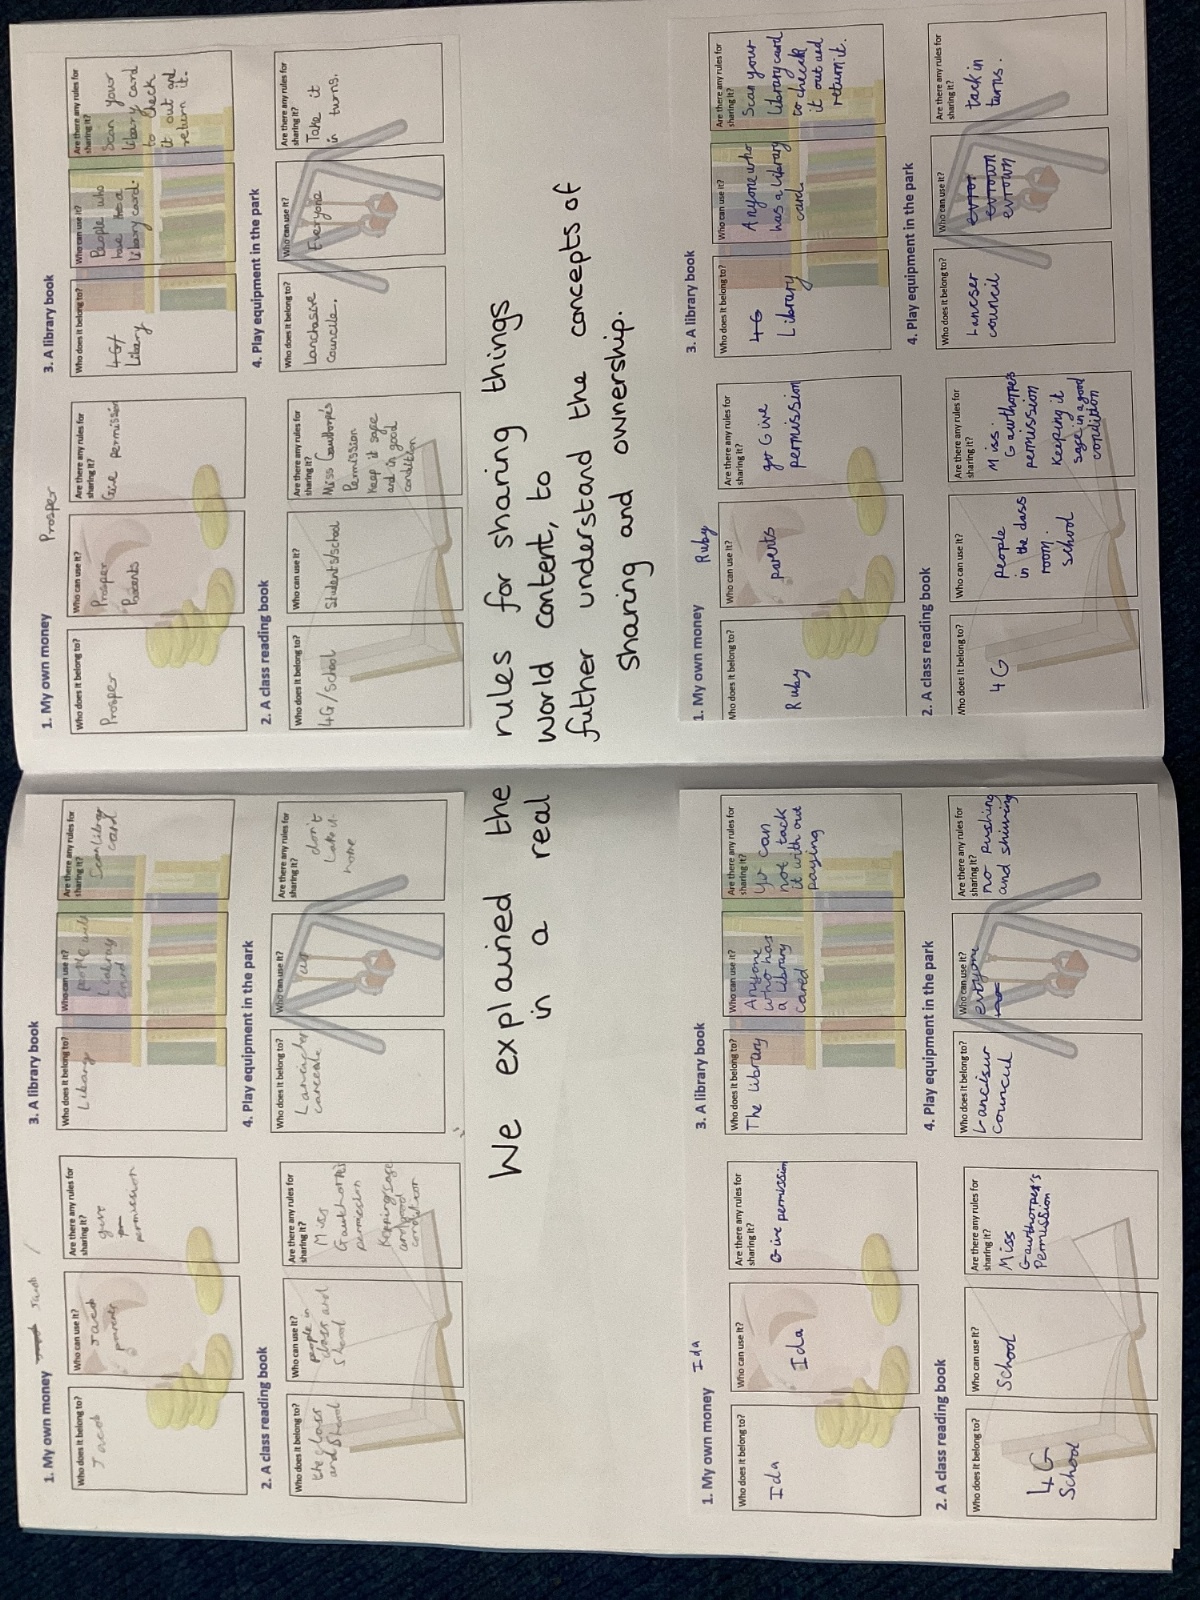 1. My own money Jacob
Who does it belong to?
Jacob
Who can use it?
Jacob
parents
Are there any rules for
sharing it?
give
permission
2. A class reading book
Who does it belong to?
the class
and School
Who can use it?
people in
class and
School
Are there any rules for
sharing it?
Miss
Gauthorpes
permesion
Kepping safe
and good
condition
3. A library book
Who does it belong to?
Libary
Who can use it?
people with
Libary
card
Are there any rules for
sharing it?
Scan library
card
4. Play equipment in the park
Who does it belong to?
Who can use it?
us
Are there any rules for
sharing it?
don't
take it
home
1. My own money Prosper
Who does it belong to?
Prosper
Who can use it?
Prosper
Parents
Are there any rules for
sharing it?
Give permission
2. A class reading book
Who does it belong to?
4G/School
Who can use it?
Students/school
Are there any rules for
sharing it?
Miss Gawthorpes
Permission
Keep it safe
and in good
condition
3. A library book
Who does it belong to?
4G/
Libary
Who can use it?
People who
have a
Libary card.
Are there any rules for
sharing it?
Scan your
libary card
to check
it out and
return it.
4. Play equipment in the park
Who does it belong to?
Lanchasire
Councile.
Who can use it?
Everyone
Are there any rules for
sharing it?
Take it
in turns.
We explained the rules for sharing things
in a real world content, to
futher understand the concepts of
sharing and ownership.
1. My own money Ida
Who does it belong to?
Ida
Who can use it?
Ida
Are there any rules for
sharing it?
Give permission
2. A class reading book
Who does it belong to?
4G
School
Who can use it?
School
Are there any rules for
sharing it?
Miss
Gawthorper's
Permission
3. A library book
Who does it belong to?
The library
Who can use it?
Anyone
who has
a library
cared
Are there any rules for
sharing it?
Yo can
not tack
it with out
paying
4. Play equipment in the park
Who does it belong to?
Lancisur
Councul
Who can use it?
evryone
Are there any rules for
sharing it?
no pushing
and shiuving
1. My own money Ruby
Who does it belong to?
Ruby
Who can use it?
parents
Are there any rules for
sharing it?
go Give
permission
2. A class reading book
Who does it belong to?
4G
Who can use it?
people
in the class
room.
School
Are there any rules for
sharing it?
Miss.
Gawthorpes
permission
Keeping it
sage in a good
condition
3. A library book
Who does it belong to?
4G
Library
Who can use it?
Anyone who
has a library
card
Are there any rules for
sharing it?
Scan your
library card
to check
it out and
return it.
4. Play equipment in the park
Who does it belong to?
Lancser
council
Who can use it?
evrown
evrown
Are there any rules for
sharing it?
tack in
turns.